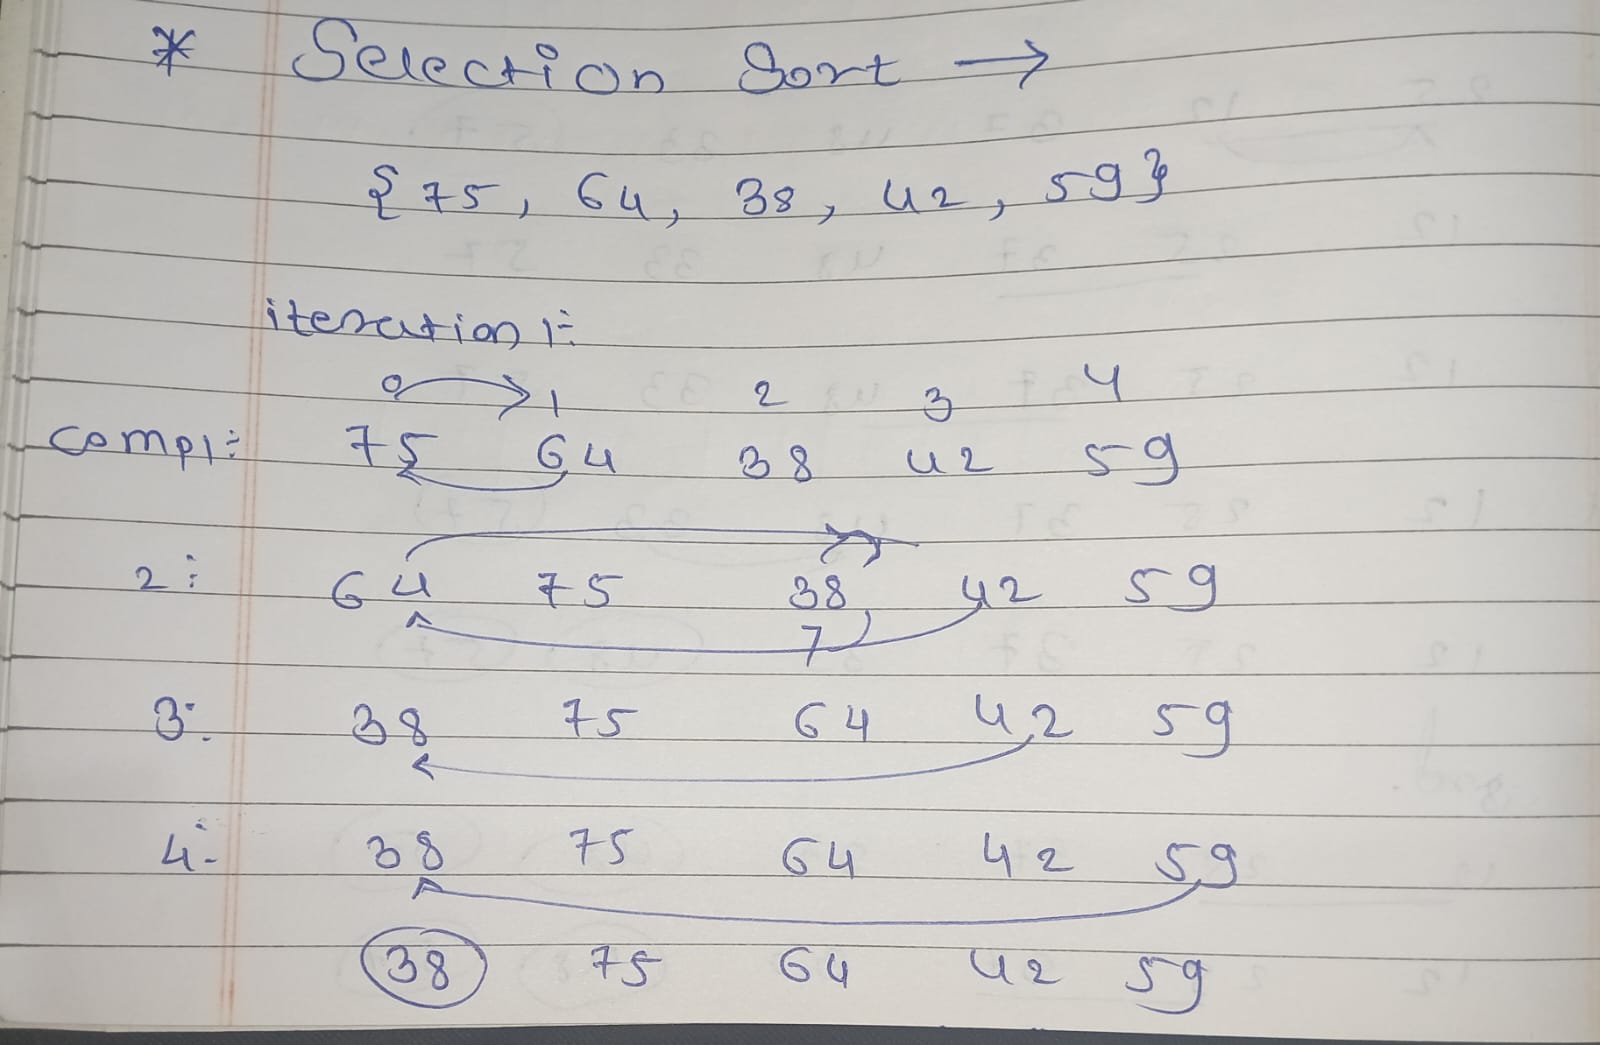 * Selection Sort →
{75, 64, 38, 42, 59}
iteration 1:-
0 1 2 3 4
comp1:- 75 64 38 42 59
2: 64 75 38 42 59
3: 38 75 64 42 59
4:- 38 75 64 42 59
38 75 64 42 59